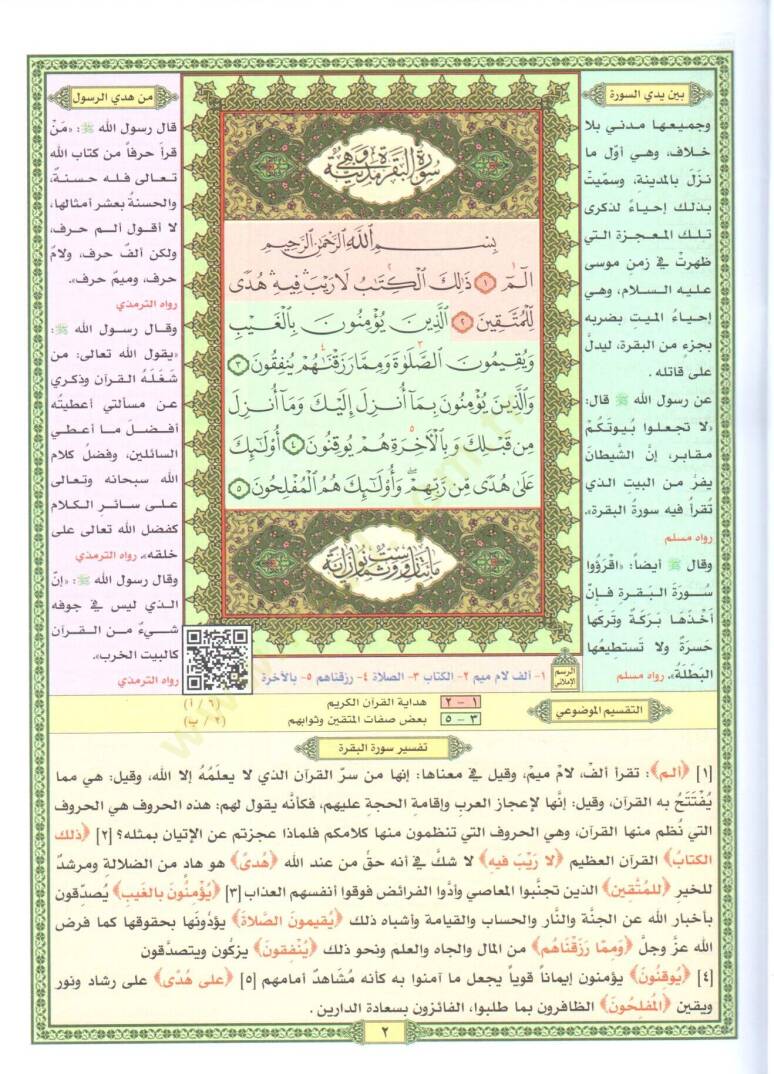 بين يدي السورة
وجميعها مدني بلا
خلاف، وهي أوّل ما
نزَلَ بالمدينة، وسمّيتْ
بذلك إحياءً لذكرى
تلك المعجزة التي
ظهرتْ في زمن موسى
عليه السلام، وهي
إحياءُ الميت بضربه
بجزء من البقرة، ليدلَّ
على قاتله .
عن رسول الله ﷺ قال:
«لا تجعلوا بُيوتَكُمْ
مقابر، إنَّ الشَّيطانَ
يفرُّ من البيتِ الذي
تُقرأُ فيه سورةُ البقرة».
رواه مسلم
وقال ﷺ أيضاً: «اقْرَؤُوا
سُورَةَ البَقرةِ فإنَّ
أخْذَهَا بَرَكَةٌ وتركَهَا
حَسرَةٌ ولا تَستطيعُها
البَطَلَةُ». رواه مسلم
سُورَةُ البَقَرَةِ وَهِيَ مَدَنِيَّةٌ
بِسْمِ اللَّهِ الرَّحْمَنِ الرَّحِيمِ
الٓمٓ ١ ذَٰلِكَ ٱلْكِتَٰبُ لَا رَيْبَ ۛ فِيهِ ۛ هُدًى
لِّلْمُتَّقِينَ ٢ ٱلَّذِينَ يُؤْمِنُونَ بِٱلْغَيْبِ
وَيُقِيمُونَ ٱلصَّلَوٰةَ وَمِمَّا رَزَقْنَٰهُمْ يُنفِقُونَ ٣
وَٱلَّذِينَ يُؤْمِنُونَ بِمَآ أُنزِلَ إِلَيْكَ وَمَآ أُنزِلَ
مِن قَبْلِكَ وَبِٱلْأَخِرَةِ هُمْ يُوقِنُونَ ٤ أُوْلَٰٓئِكَ
عَلَىٰ هُدًى مِّن رَّبِّهِمْ ۖ وَأُوْلَٰٓئِكَ هُمُ ٱلْمُفْلِحُونَ ٥
الرسم الإملائي
١- ألف لام ميم ٢- الكتاب ٣- الصلاة ٤- رزقناهم ٥- بالآخرة
من هدي الرسول
قال رسول الله ﷺ: «مَنْ
قرأ حرفاً من كتاب الله
تعالى فله حسنةٌ،
والحسنةُ بعشر أمثالها،
لا أقول ألـم حرف،
ولكن ألفٌ حرف، ولامٌ
حرف، وميمٌ حرف».
رواه الترمذي
وقال رسول الله ﷺ:
«يقول الله تعالى: من
شَغَلَهُ القرآن وذكري
عن مسألتي أعطيتُه
أفضلَ ما أعطي
السائلين، وفضلُ كلام
الله سبحانه وتعالى
على سائرِ الكلام
كفضل الله تعالى على
خلقه». رواه الترمذي
وقال رسول الله ﷺ: «إنّ
الذي ليس في جوفه
شيءٌ من القرآن
كالبيت الخرب».
رواه الترمذي
التقسيم الموضوعي
١ – ٢ هداية القرآن الكريم (٦/أ)
٣ – ٥ بعض صفات المتقين وثوابهم (٢/ب)
تفسير سورة البقرة
[١] ﴿ألم﴾: تقرأ ألف، لامْ ميمْ، وقيل في معناها: إنها من سرّ القرآن الذي لا يعلَمُهُ إلا الله، وقيل: هي مما
يُفْتَتَحُ به القرآن، وقيل: إنَّها لإعجاز العرب وإقامةِ الحجة عليهم، فكأنَّه يقول لهم: هذه الحروف هي الحروف
التي نُظم منها القرآن، وهي الحروف التي تنظمون منها كلامكم فلماذا عجزتم عن الإتيان بمثله؟ [٢] ﴿ذلك
الكتابُ﴾ القرآن العظيم ﴿لا رَيْبَ فيه﴾ لا شكَّ في أنه حقٌ من عند الله ﴿هُدىً﴾ هو هاد من الضلالة ومرشدٌ
للخير ﴿للمُتَّقين﴾ الذين تجنَّبوا المعاصي وأدَّوا الفرائضَ فوقوا أنفسهم العذاب [٣] ﴿يُؤْمنُونَ بالغَيب﴾ يُصدّقون
بأخبار الله عن الجنَّة والنَّار والحساب والقيامة وأشباه ذلك ﴿يُقيمونَ الصَّلاةَ﴾ يؤدُونَها بحقوقها كما فرض
الله عزَّ وجلَّ ﴿وَممَّا رَزَقْناهُم﴾ من المال والجاه والعلم ونحو ذلك ﴿يُنْفقونَ﴾ يزكُون ويتصدَّقون
[٤] ﴿يُوقنُونَ﴾ يؤمنون إيماناً قوياً يجعل ما آمنوا به كأنه مُشَاهدٌ أمامهم [٥] ﴿على هُدًى﴾ على رشاد ونور
ويقين ﴿المُفلحُونَ﴾ الظافرون بما طلبوا، الفائزون بسعادة الدارين .
٢